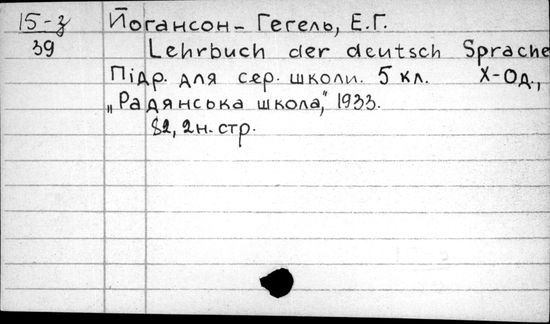 15-з
39
Йогансон- Гегель, Е.Г.
Lehrbuch der deutsch Sprache
Підр. для сер. школи. 5 кл. Х-Од.,
„Радянська школа," 1933.
82, 2н. стр.